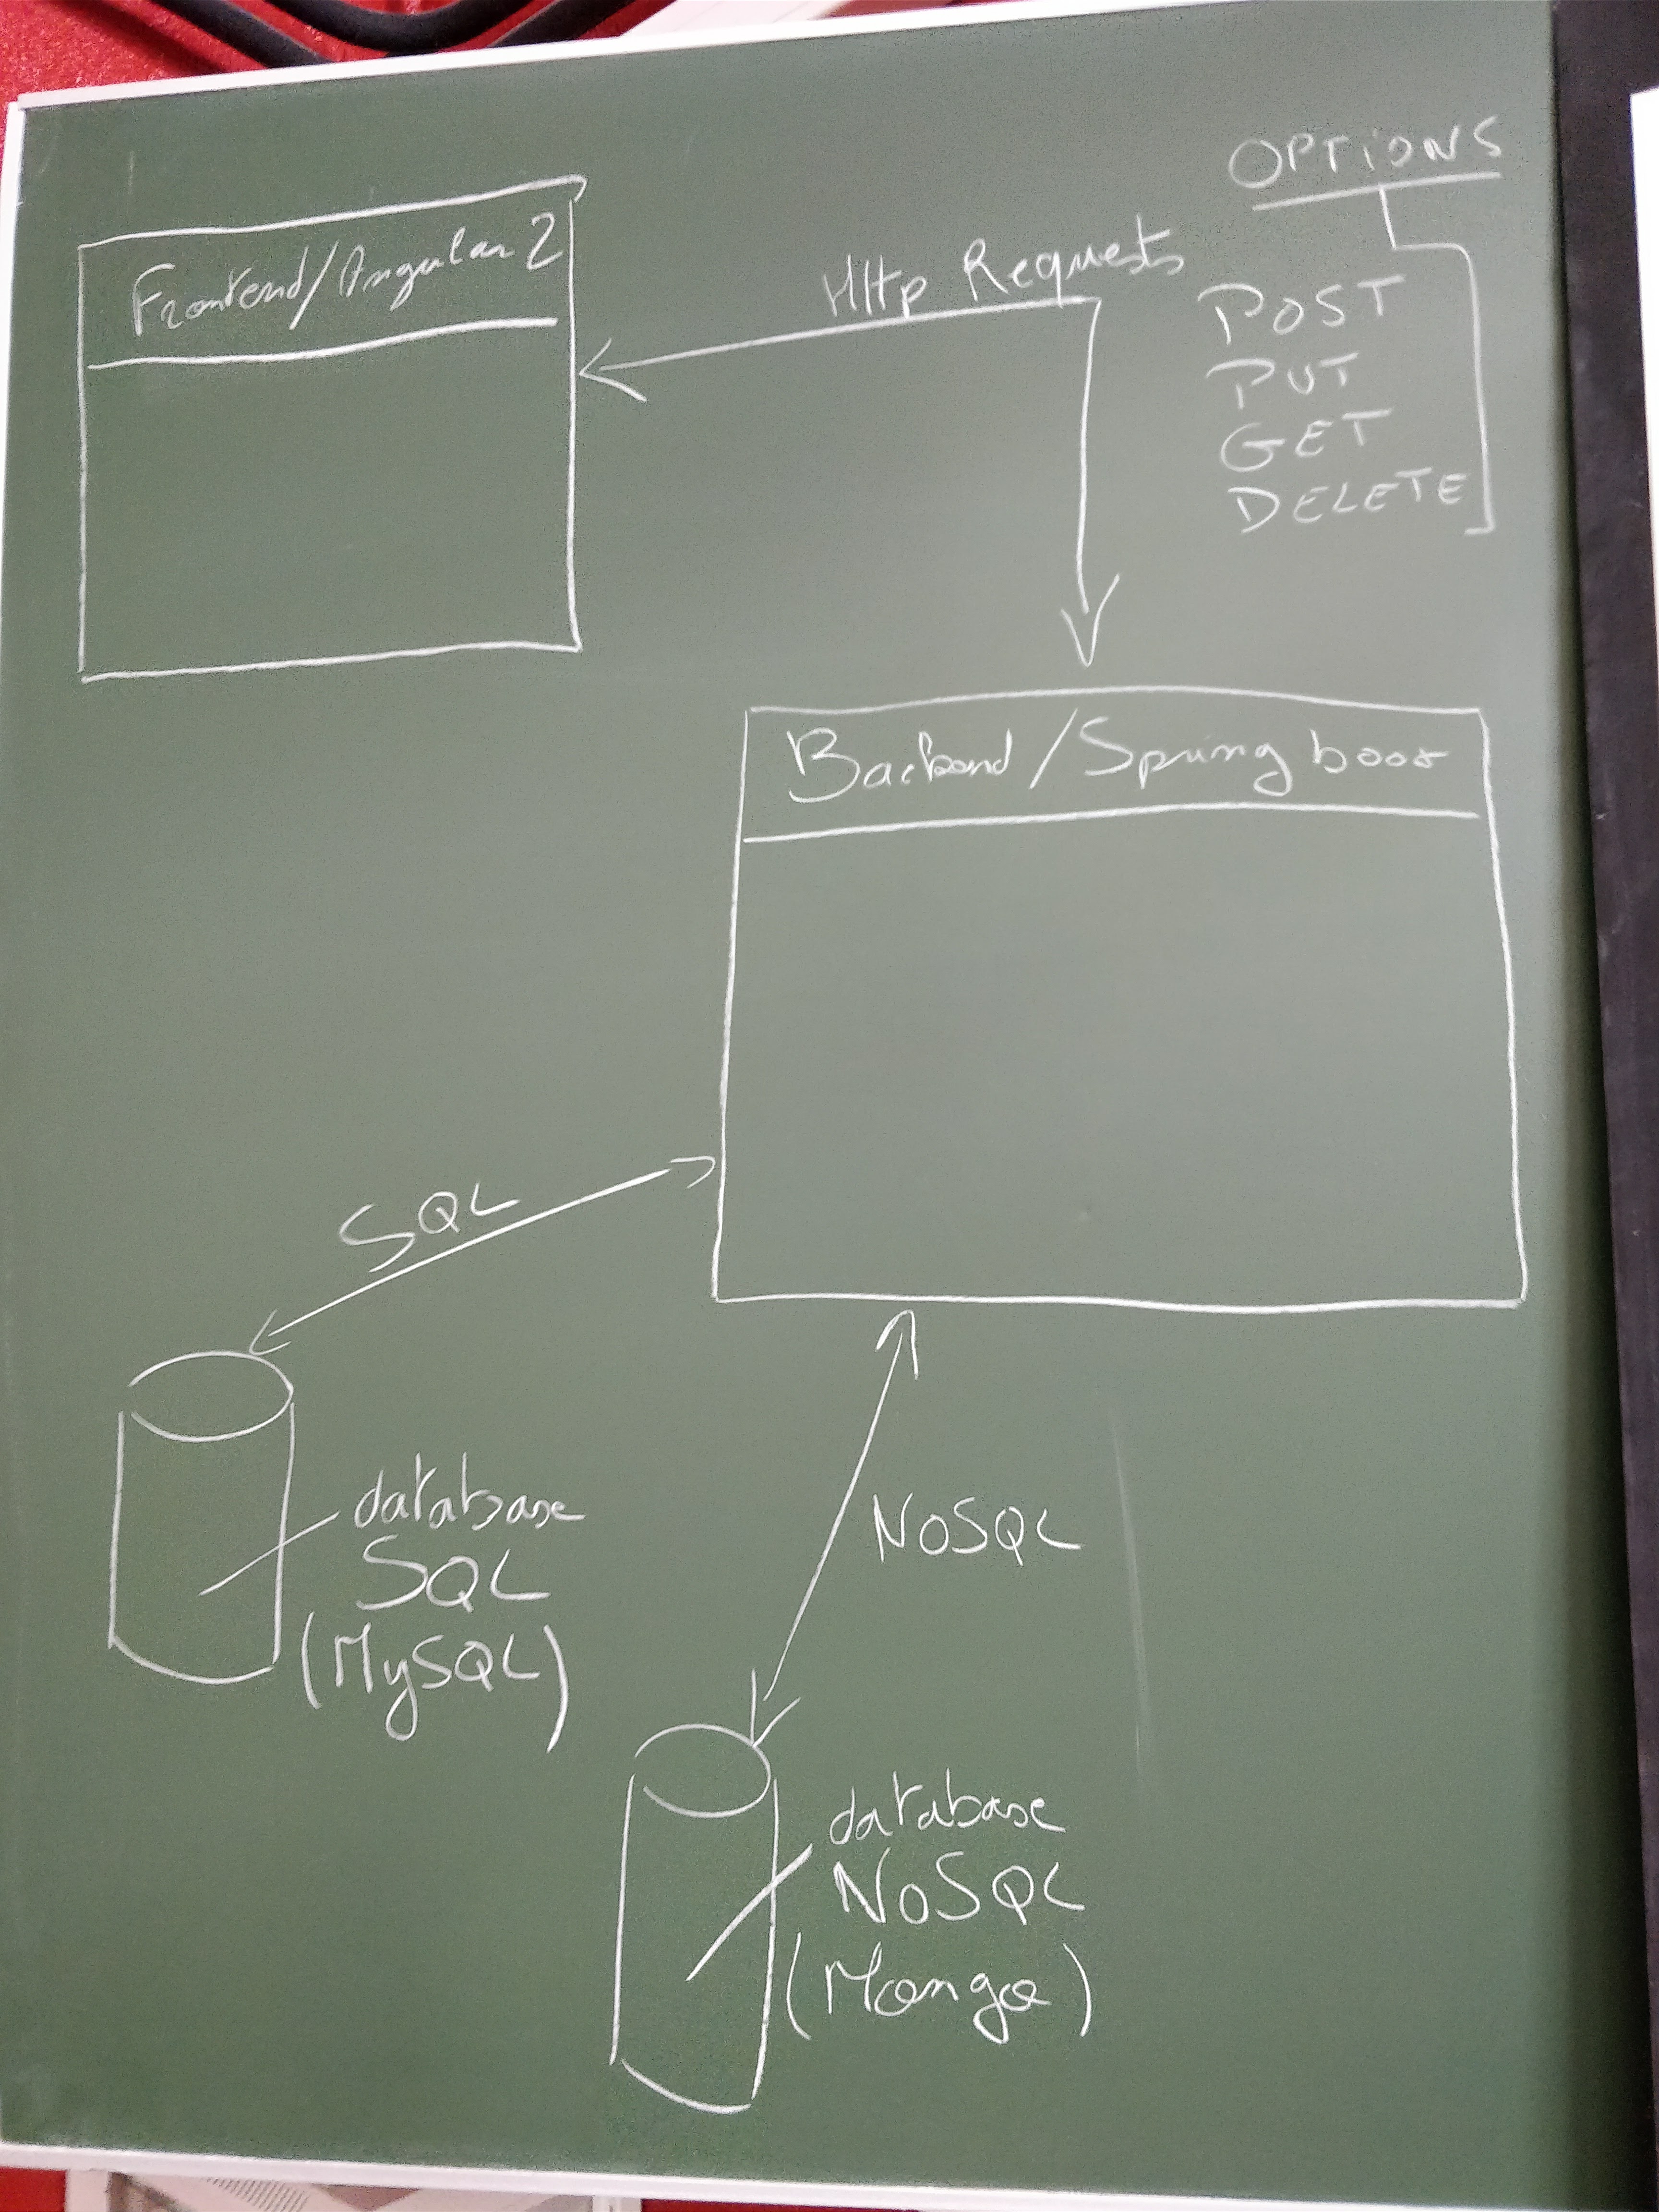 OPTIONS
Frontend/Angular 2
Http Requests
POST
PUT
GET
DELETE
Backend/Spring boot
SQL
database
SQL
(MySQL)
NoSQL
database
NoSQL
(Mongo)